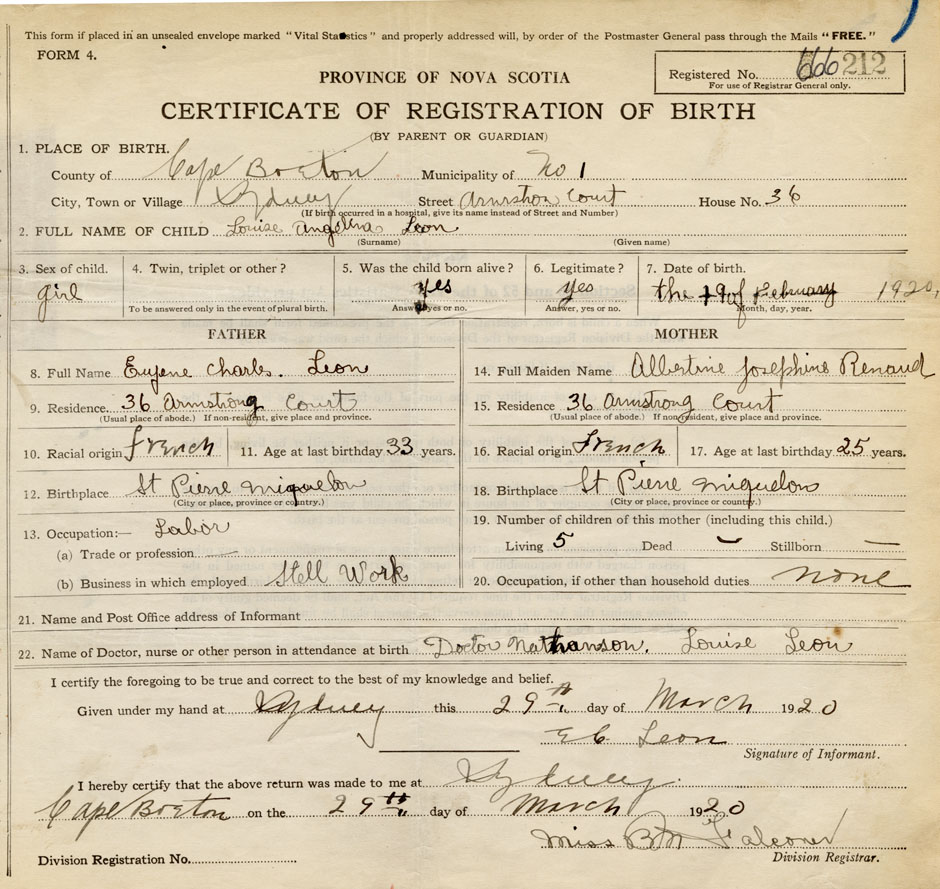 This form if placed in an unsealed envelope marked "Vital Statistics" and properly addressed will, by order of the Postmaster General pass through the Mails "FREE."
FORM 4.
PROVINCE OF NOVA SCOTIA
Registered No. 212
For use of Registrar General only.
CERTIFICATE OF REGISTRATION OF BIRTH
(BY PARENT OR GUARDIAN)
1. PLACE OF BIRTH.
County of Cape Breton Municipality of No 1
City, Town or Village Sydney Street Armrstron Court House No. 36
(If birth occurred in a hospital, give its name instead of Street and Number)
2. FULL NAME OF CHILD Louise Angelina Leon
(Surname) (Given name)
3. Sex of child. 4. Twin, triplet or other? 5. Was the child born alive? 6. Legitimate? 7. Date of birth.
girl yes yes the 19 of February 1920,
To be answered only in the event of plural birth. Answer, yes or no. Answer, yes or no. Month, day, year.
FATHER
8. Full Name Eugene Charles. Leon
9. Residence. 36 Armstrong Court
(Usual place of abode.) If non-resident, give place and province.
10. Racial origin French 11. Age at last birthday 33 years.
12. Birthplace St Pierre Miquelon
(City or place, province or country.)
13. Occupation:— Labor
(a) Trade or profession
(b) Business in which employed Stell Work
MOTHER
14. Full Maiden Name Albertine Josephine Renaud
15. Residence 36 Armstrong Court
(Usual place of abode.) If non-resident, give place and province.
16. Racial origin French 17. Age at last birthday 25 years.
18. Birthplace St Pierre Miquelon
(City or place, province or country.)
19. Number of children of this mother (including this child.)
Living 5 Dead – Stillborn —
20. Occupation, if other than household duties. none
21. Name and Post Office address of Informant
22. Name of Doctor, nurse or other person in attendance at birth Doctor Nathanson. Louise Leon
I certify the foregoing to be true and correct to the best of my knowledge and belief.
Given under my hand at Sydney this 29th day of March 1920
E C Leon
Signature of Informant.
I hereby certify that the above return was made to me at Sydney.
Cape Breton on the 29th day of March 1920
Miss B M Falconer
Division Registrar.
Division Registration No.